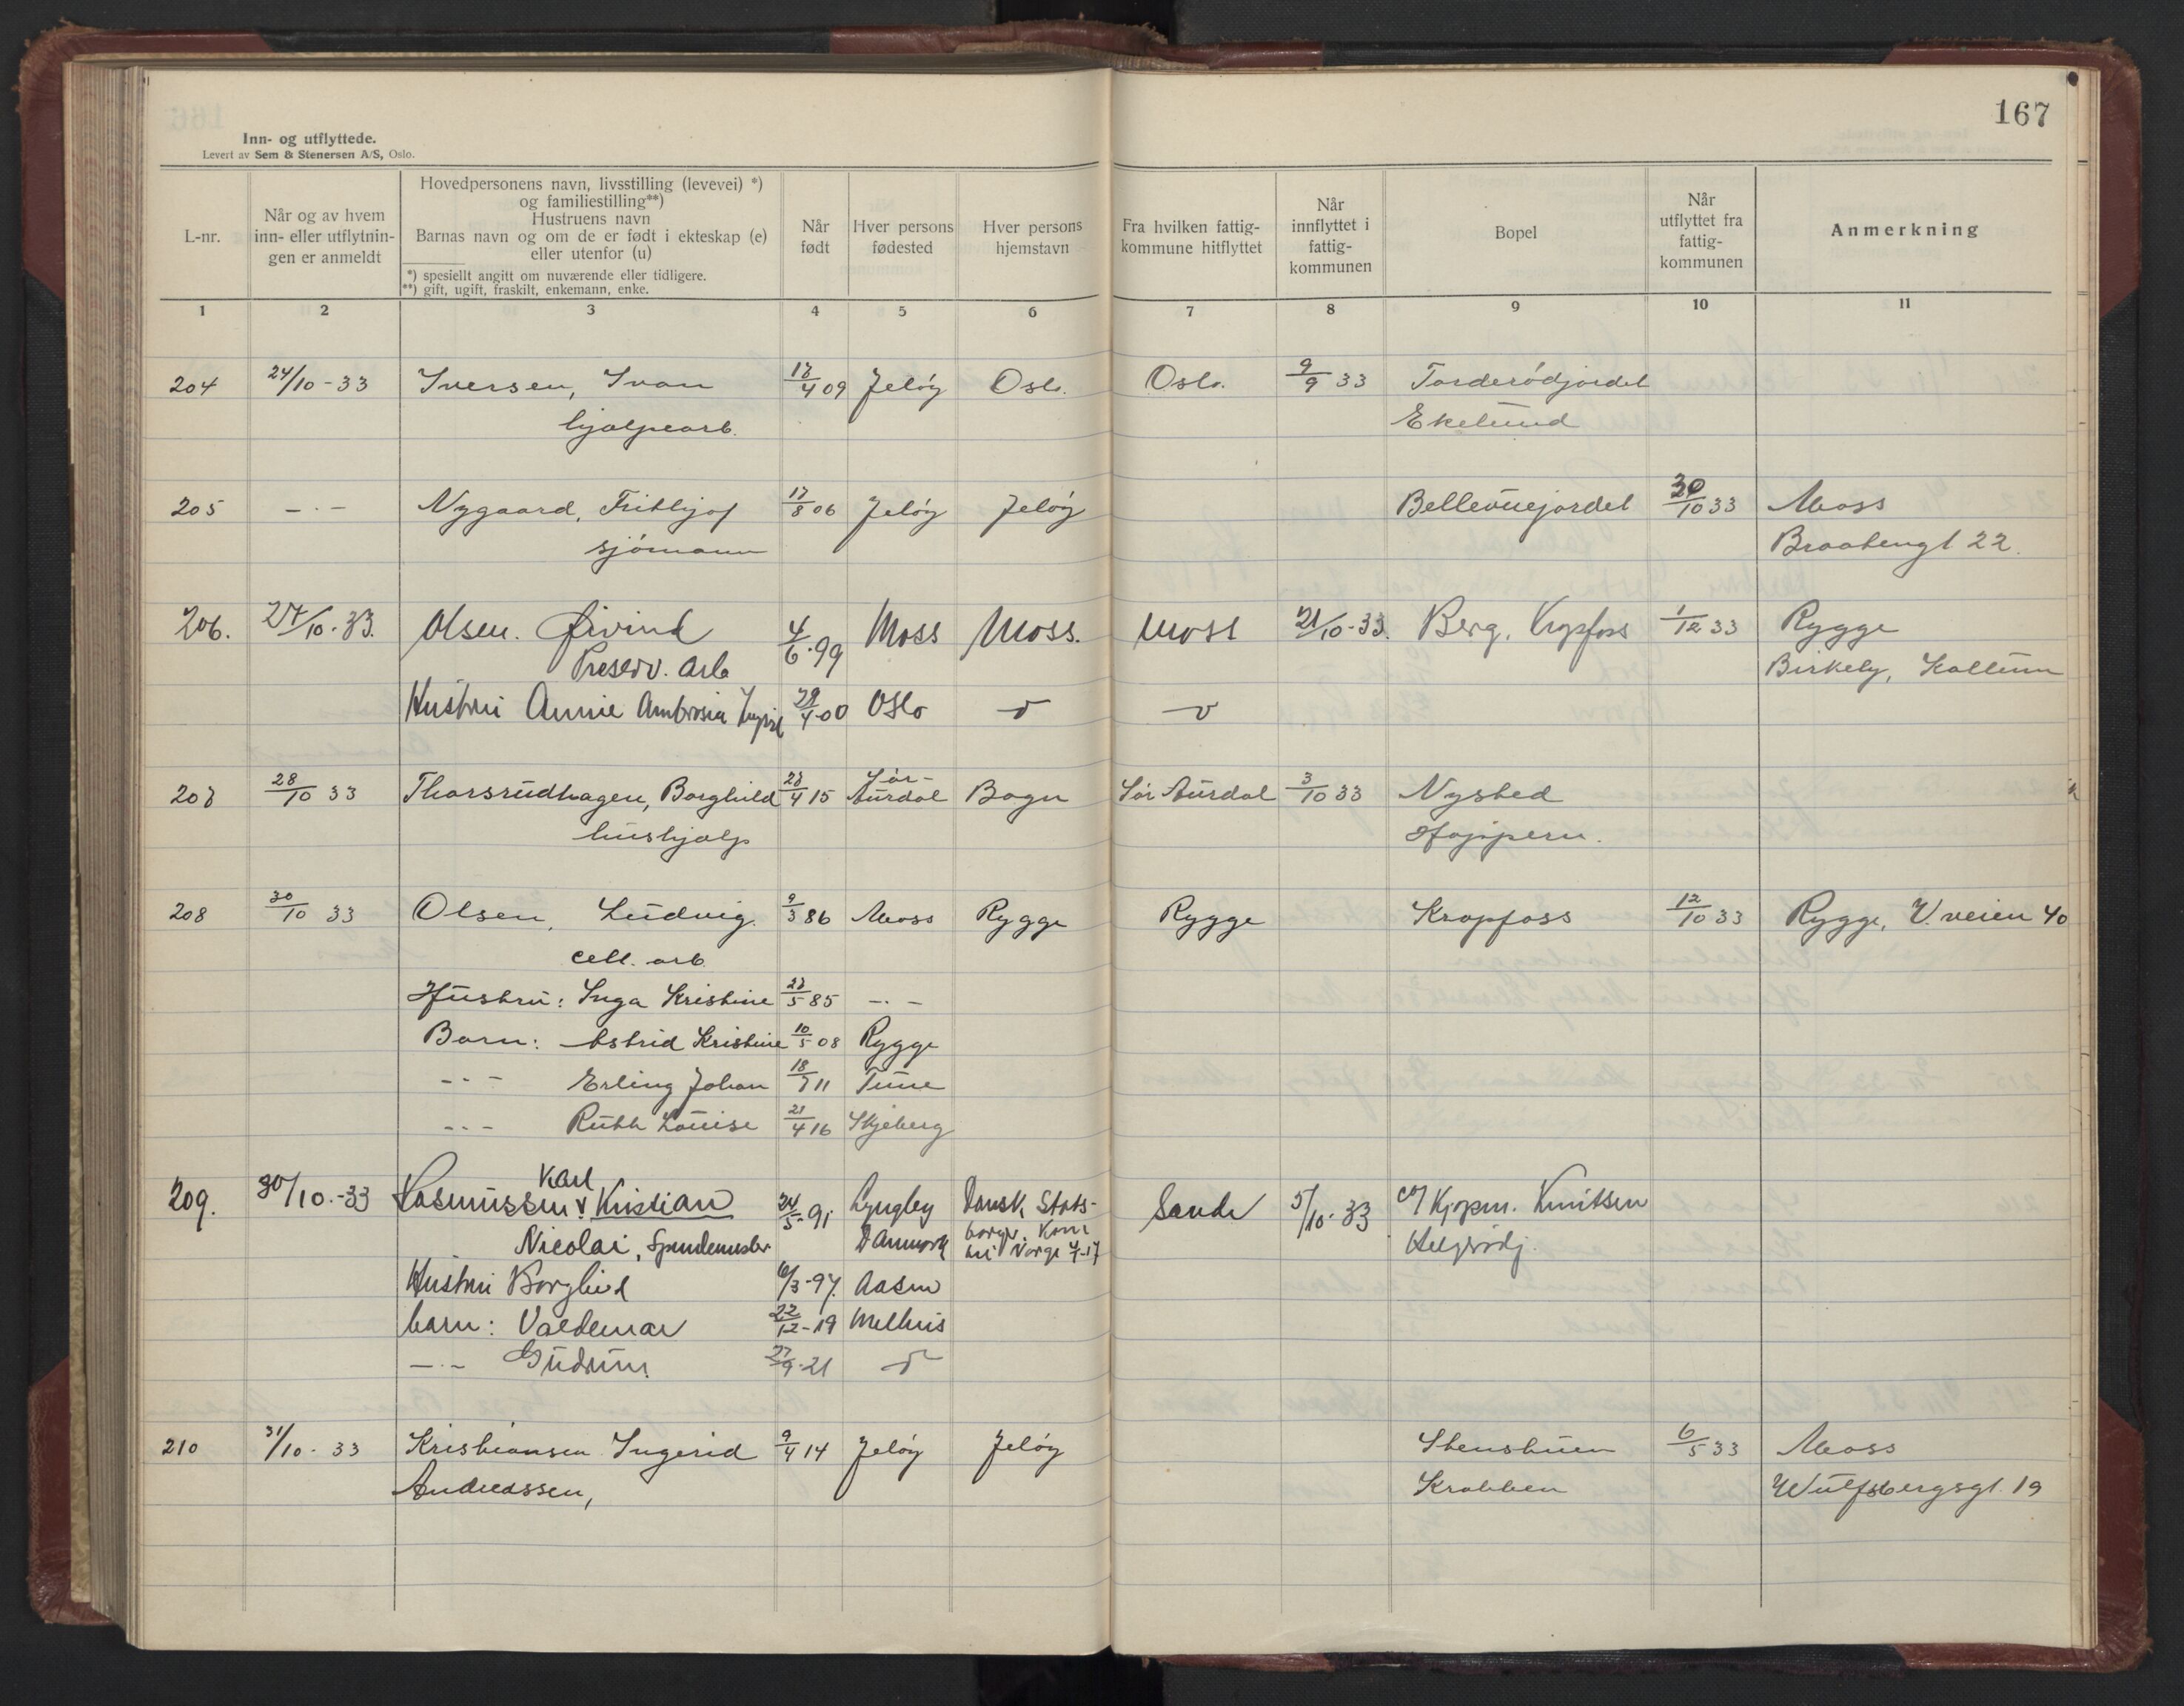 167
Inn- og utflyttede.
Levert av Sem & Stenersen A/S, Oslo.
L-nr.
Når og av hvem
inn- eller utflytnin-
gen er anmeldt
Hovedpersonens navn, livsstilling (levevei) *)
og familiestilling**)
Hustruens navn
Barnas navn og om de er født i ekteskap (e)
eller utenfor (u)
*) spesiellt angitt om nuværende eller tidligere.
**) gift, ugift, fraskilt, enkemann, enke.
Når
født
Hver persons
fødested
Hver persons
hjemstavn
Fra hvilken fattig-
kommune hitflyttet
Når
innflyttet i
fattig-
kommunen
Bopel
Når
utflyttet fra
fattig-
kommunen
Anmerkning
1 2 3 4 5 6 7 8 9 10 11
204 24/10-33 Iversen, Ivan 17/4 09 Jeløy Oslo. Oslo. 9/9 33 Torderødjordet
hjelpearb. Ekelund
205 -·- Nygaard, Frithjof 17/8 06 Jeløy Jeløy Bellevuejordet 30/10 33 Moss
sjømann Braatengt 22.
206. 27/10-33. Olsen. Øivind 4/6-99 Moss Moss. Moss 21/10-33. Berg, Kropfoss 1/12 33 Rygge
Preserv. arb Birkely, Kallum
Hustru Annie Ambrosia 29/4-00 Oslo
207 28/10 33 Thorsrudhagen, Borghild 27/4 15 Sør-Aurdal Bagn Sør Aurdal 3/10 33 Nysted
hushjelp Hoppern.
208 30/10 33 Olsen, Ludvig. 9/3 86 Moss Rygge Rygge Kropfoss 12/10 33 Rygge, V. veien 40
cell. arb.
Hustru: Inga Kristine 27/5 85 -·-
Barn: Astrid Kristine 10/5 08 Rygge
-·- Erling Johan 18/7 11 Tune
-·- Ruth Louise 21/4 16 Skjeberg
Karl
209. 30/10.-33 Rasmussen Kristian 24/5-91 Lyngby Dansk Stats- Sande 5/10-33 c/ Kjøpm. Knutsen
Nicolai, Danmark borger. Kom
til Norge 4/7-17
Hustru Borghild 6/3-97. Aasen
barn: Valdemar 22/12-19 Melhus
-·- Gudrun 27/9-21
210 31/10-33 Kristiansen Ingerid 9/4 14 Jeløy Jeløy Stenstuen 6/5 33 Moss
Andreassen, Krabben Wulfsbergsgt. 19